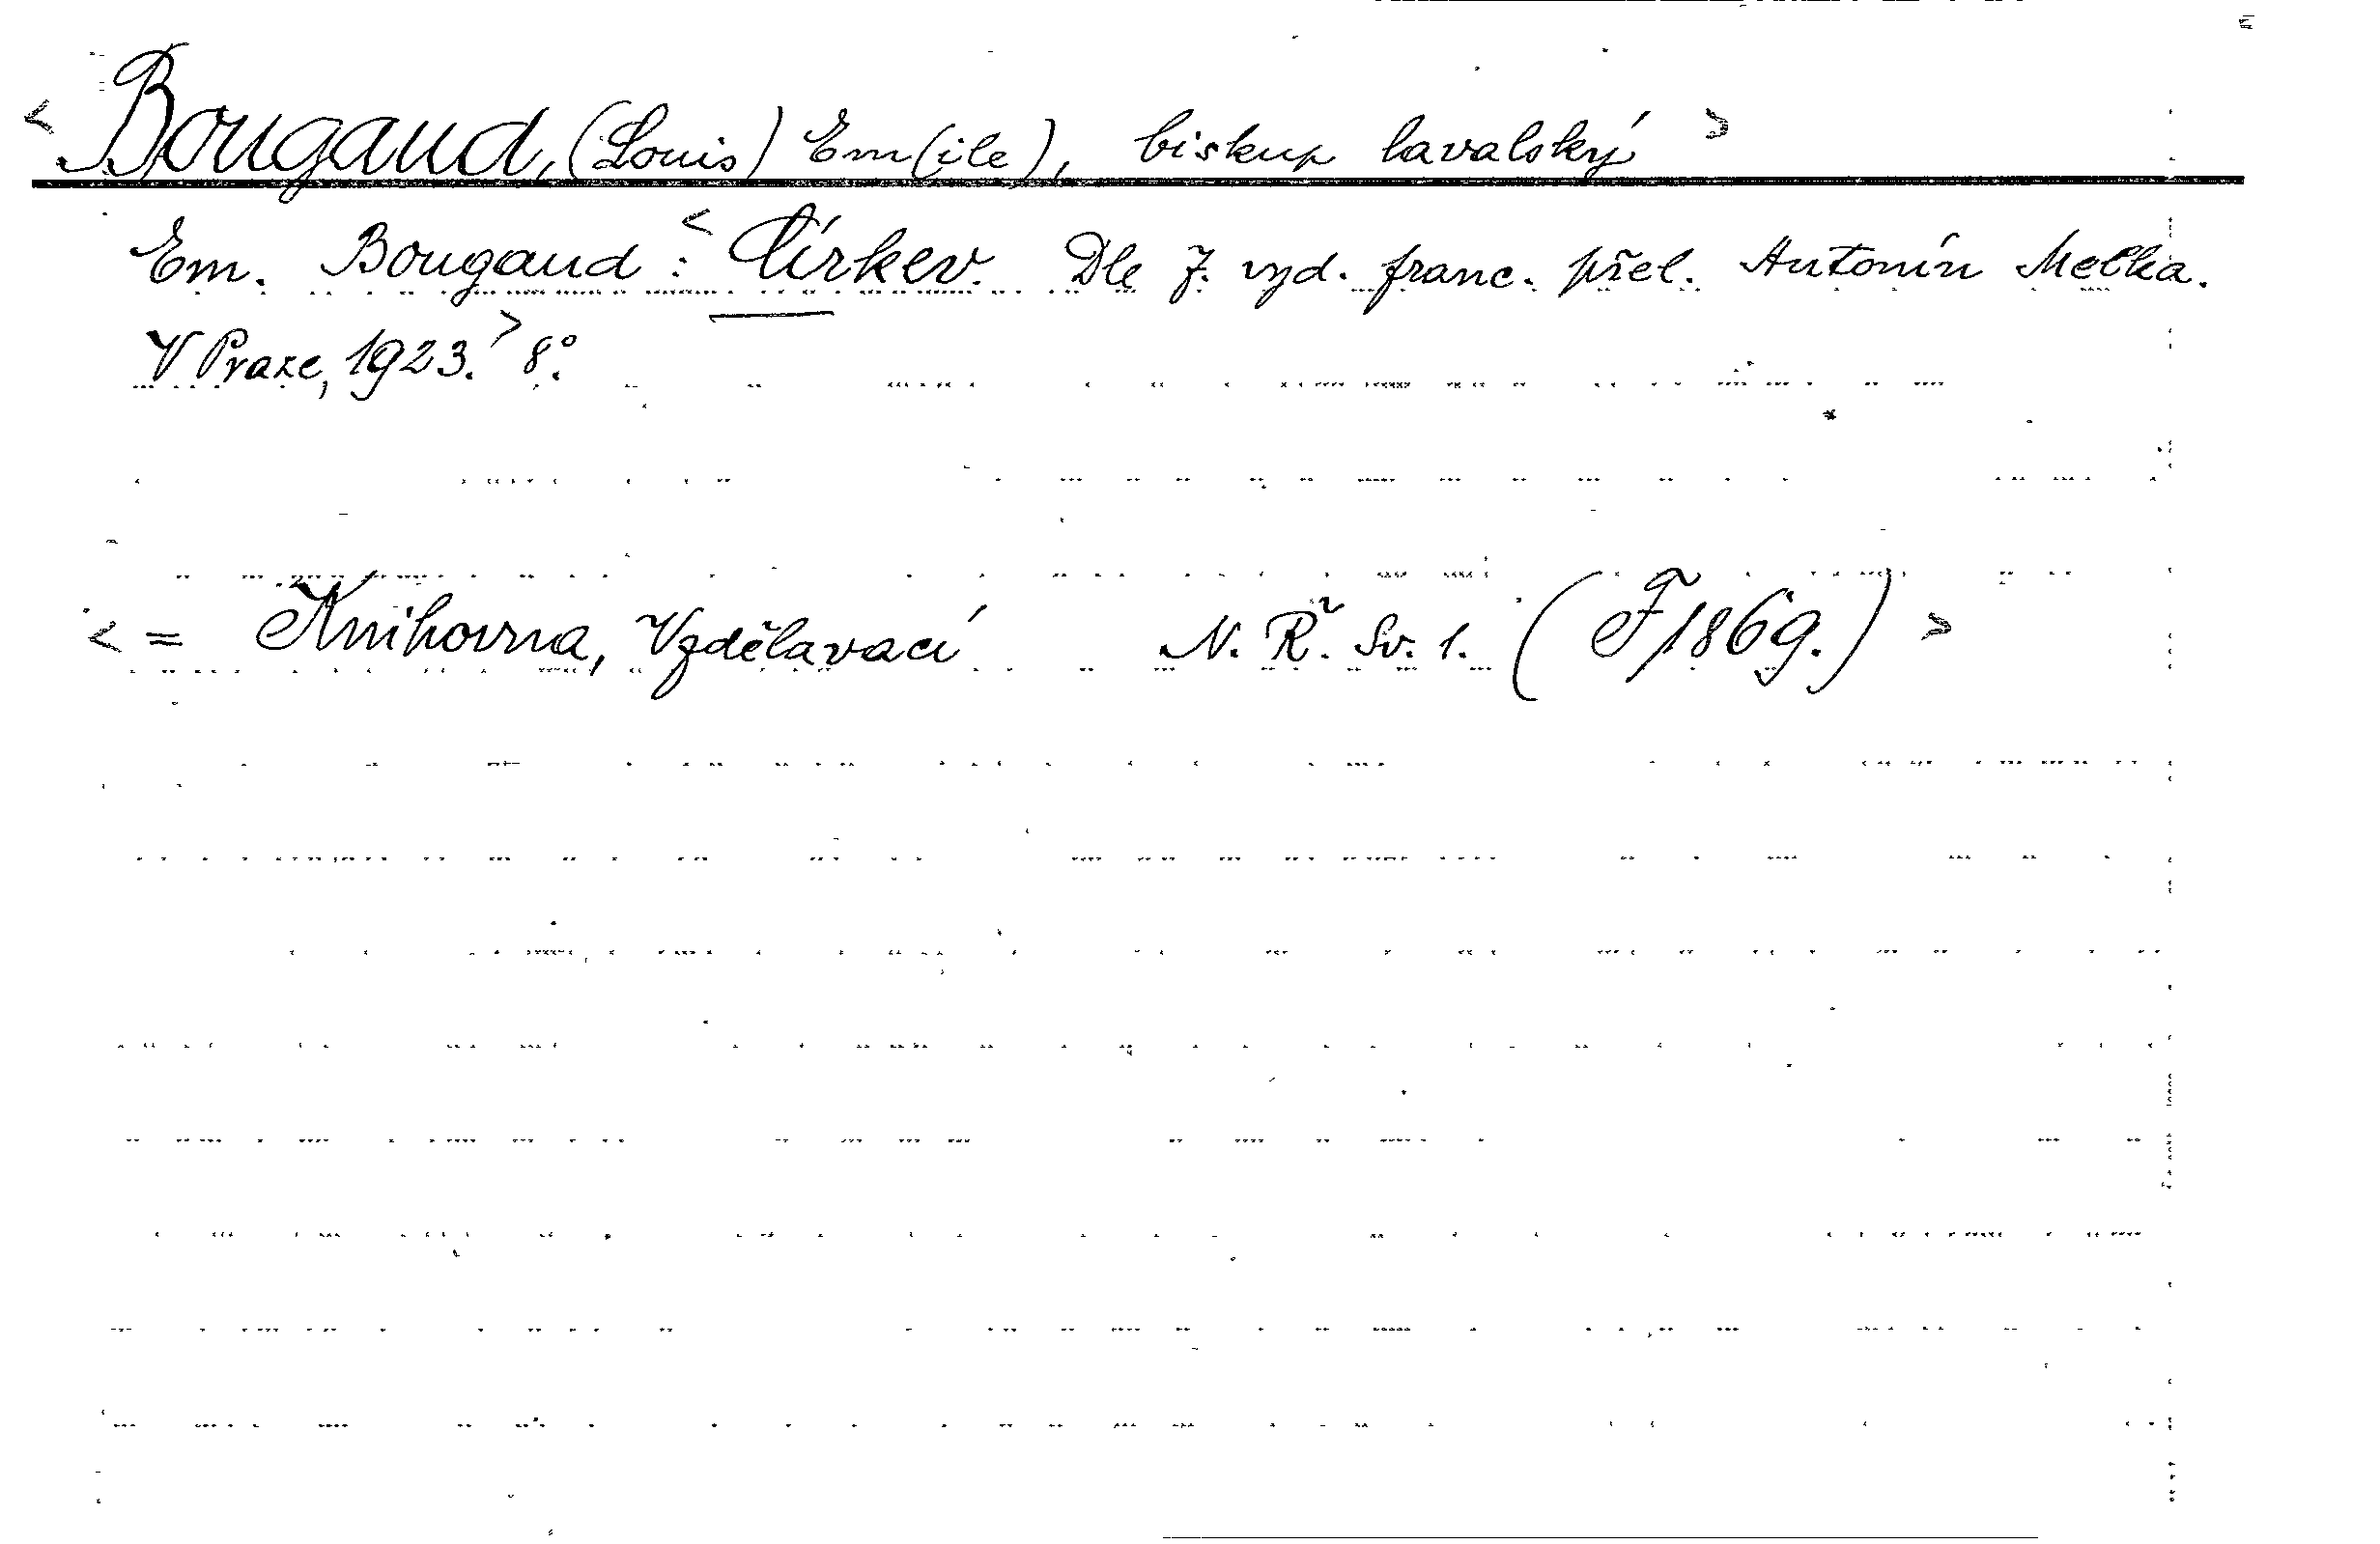 < Bougaud, (Louis) Em(ile), biskup lavalský >
Em. Bougaud: < Církev. Dle 7. vyd. franc. přel. Antonín Melka.
V Praze, 1923. > 8°.
< = Knihovna, Vzdělavací N. Ř. Sv. 1. (F 1869.) >